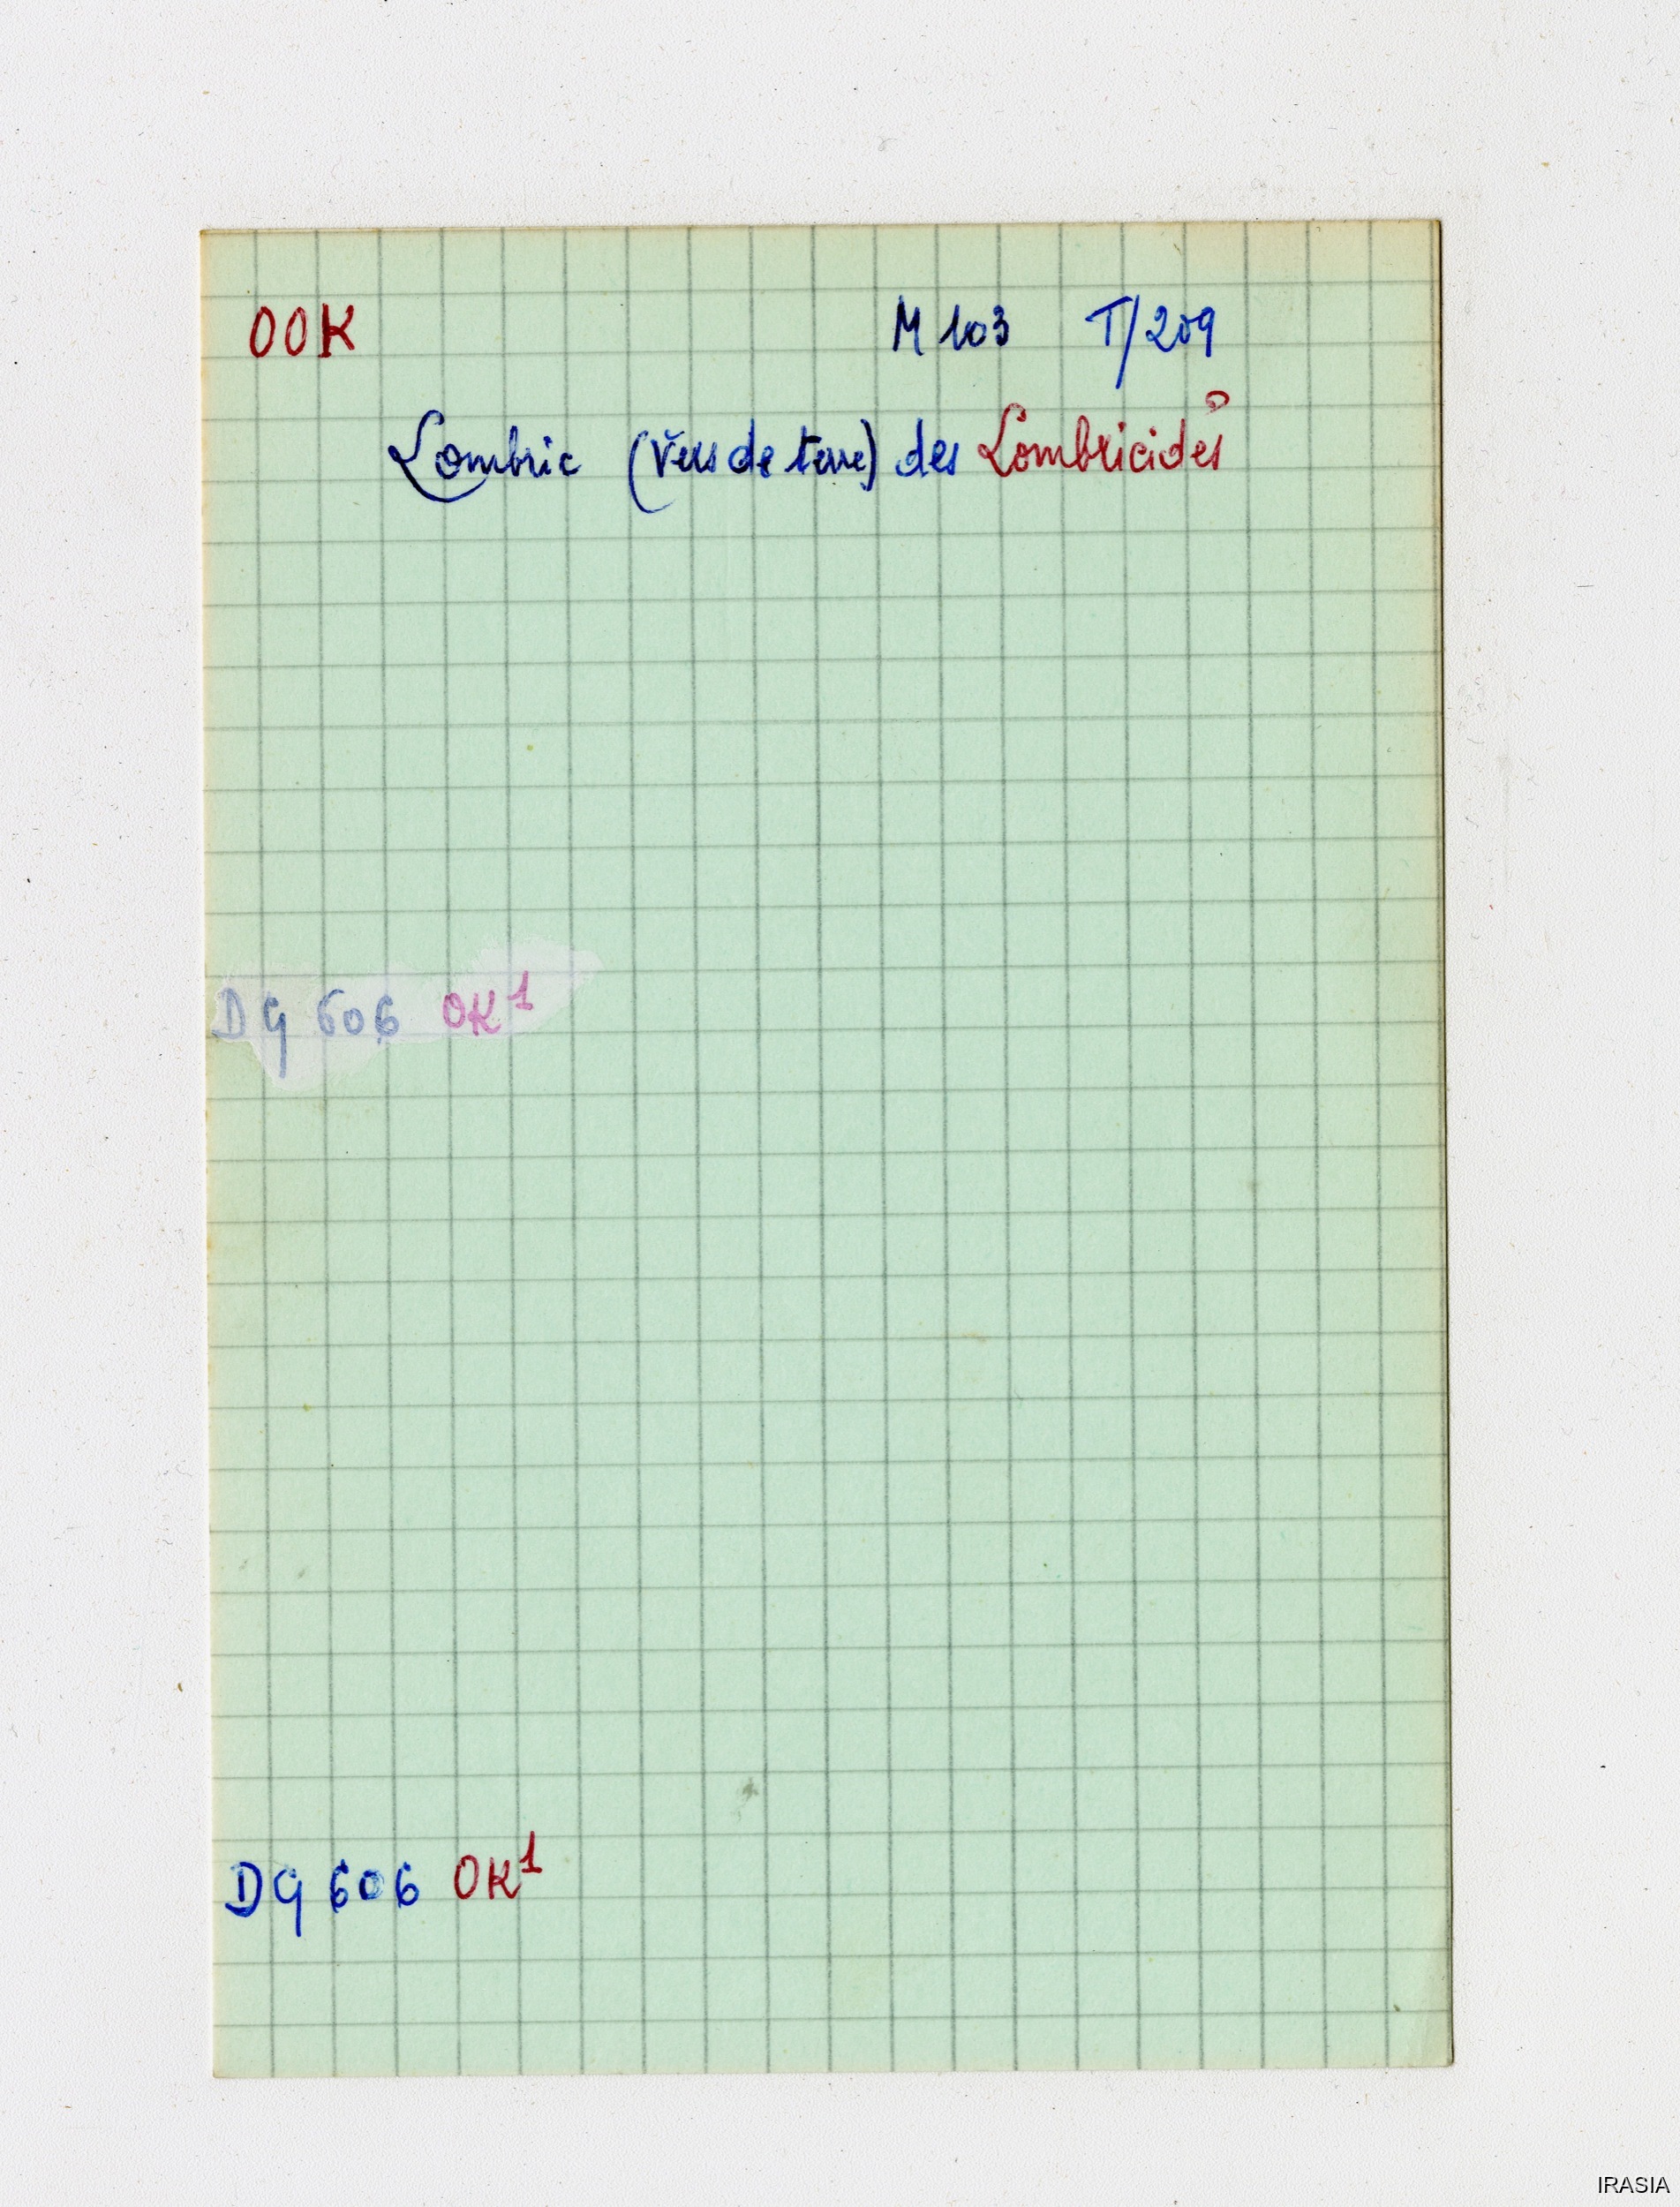 OOK M 103 T/209
Lombric (Vers de terre) des Lombricidés
DG 606 OK¹
DG 606 OK¹
IRASIA